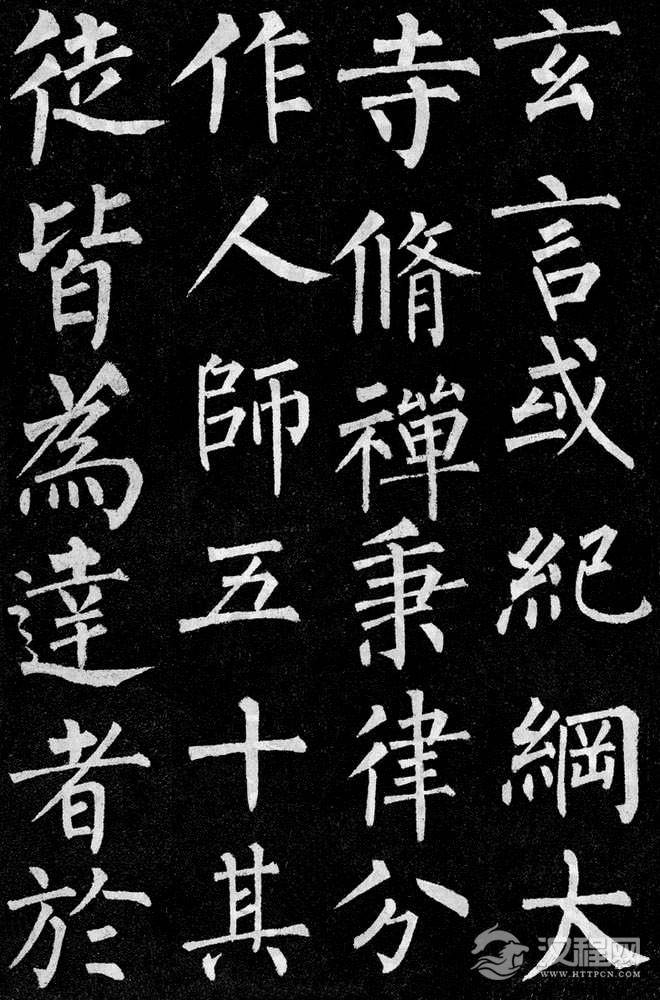 玄言或紀綱大
寺脩禪秉律分
作人師五十其
徒皆為達者於
汉程网
WWW.HTTPCN.COM